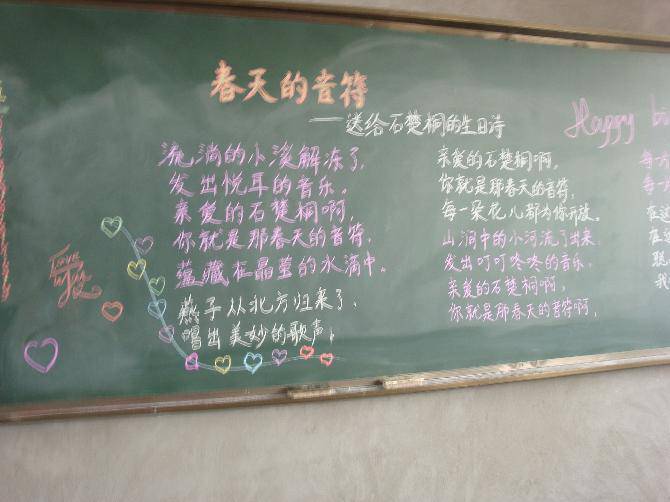 春天的音符
——送给石楚桐的生日诗
流淌的小溪解冻了,
发出悦耳的音乐。
亲爱的石楚桐啊,
你就是那春天的音符,
蕴藏在晶莹的水滴中。
燕子从北方归来了,
唱出美妙的歌声,
亲爱的石楚桐啊,
你就是那春天的音符,
每一朵花儿都为你开放。
山涧中的小河流了出来
发出叮叮咚咚的音乐,
亲爱的石楚桐啊,
你就是那春天的音符啊,
Happy
Love